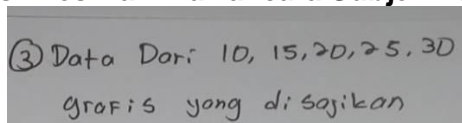 ③ Data Dari 10, 15, 20, 25, 30
grafis yang disajikan